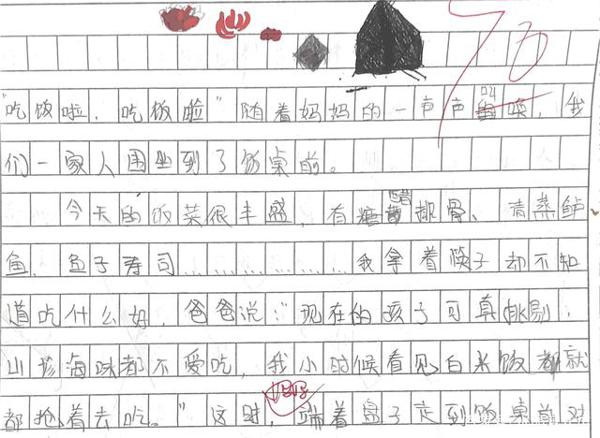 "吃饭啦，吃饭啦"随着妈妈的一声声叫唤，我
们一家人围坐到了饭桌前。
今天的饭菜很丰盛，有糖醋排骨、清蒸鲈
鱼、鱼子寿司………………我拿着筷子却不知
道吃什么好，爸爸说："现在的孩子可真挑剔，
山珍海味都不爱吃，我小时候看见白米饭都就
都抢着去吃。"这时，端着盘子走到饭桌前对